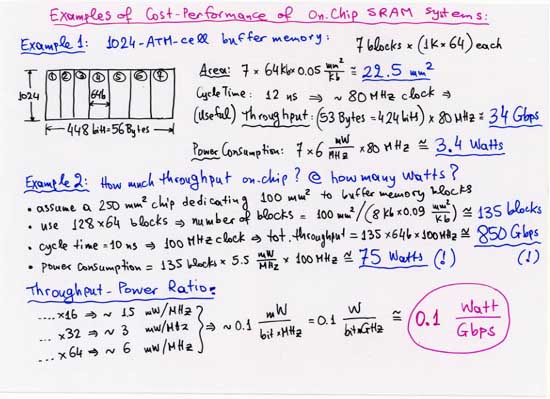 Examples of Cost-Performance of On-Chip SRAM Systems:
Example 1: 1024-ATM-cell buffer memory: 7 blocks × (1K×64) each
Area: 7 × 64Kb × 0.05 mm²/Kb ≅ 22.5 mm²
① ② ③ ④ ⑤ ⑥ ⑦
64b
1024
448 bits = 56 Bytes
Cycle Time: 12 ns ⇒ ~ 80 MHz clock ⇒
(Useful) Throughput: (53 Bytes = 424 bits) × 80 MHz ≅ 34 Gbps
Power Consumption: 7 × 6 mW/MHz × 80 MHz ≅ 3.4 Watts
Example 2: How much throughput on-chip? @ how many Watts?
• assume a 250 mm² chip dedicating 100 mm² to buffer memory blocks
• use 128×64 blocks ⇒ number of blocks = 100 mm²/(8 Kb × 0.09 mm²/Kb) ≅ 135 blocks
• cycle time = 10 ns ⇒ 100 MHz clock ⇒ tot. throughput = 135 × 64b × 100 MHz ≅ 850 Gbps
• power consumption = 135 blocks × 5.5 mW/MHz × 100 MHz ≅ 75 Watts (!) (!)
Throughput-Power Ratio:
.... ×16 ⇒ ~ 1.5 mW/MHz
... ×32 ⇒ ~ 3 mW/MHz
... ×64 ⇒ ~ 6 mW/MHz
⇒ ~ 0.1 mW/bit×MHz = 0.1 W/bit×GHz ≅ 0.1 Watt/Gbps